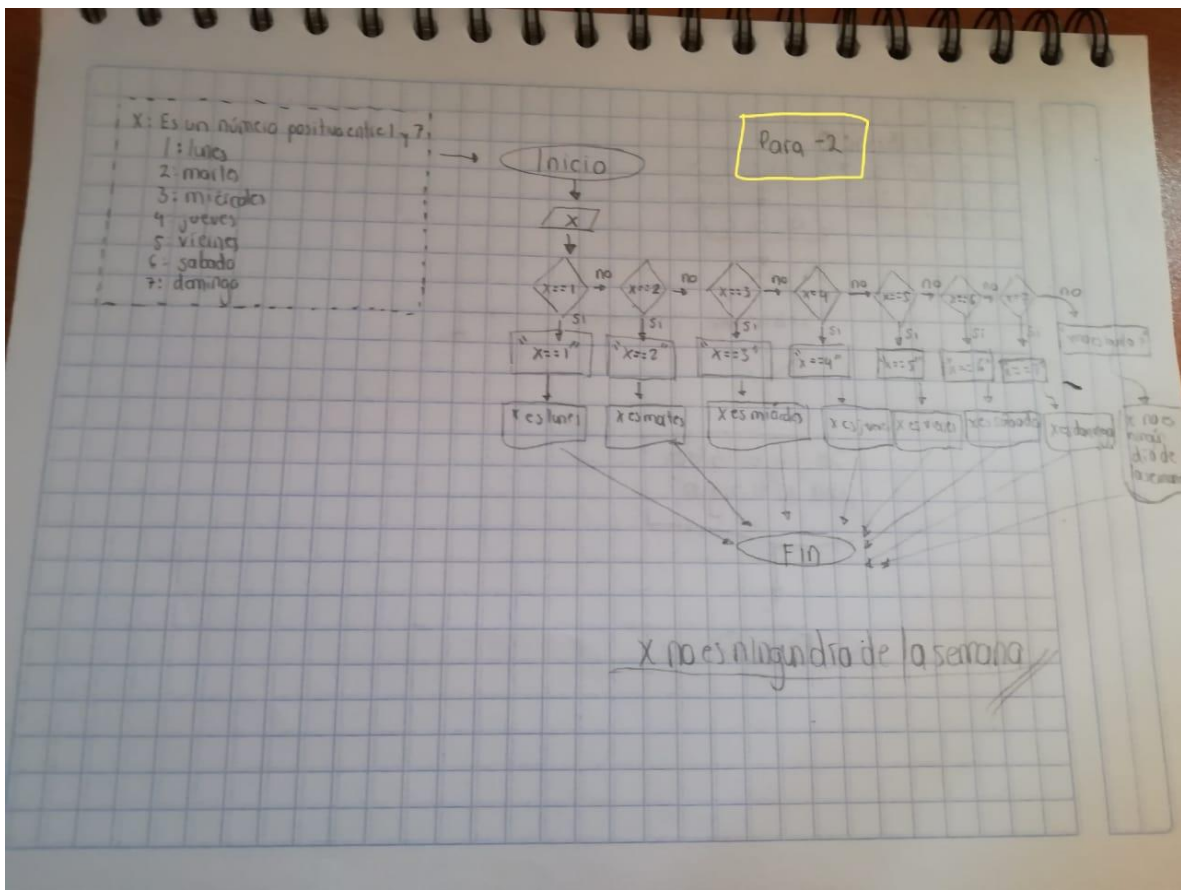 X: Es un número positivo entre 1 y 7.
1: lunes
2: marte
3: miércoles
4: jueves
5: viernes
6: sabado
7: domingo
Para -2
Inicio
X
x==1 no x==2 no x==3 no x=4 no x==5 no x==6 no no
si si si si si si
"x==1" "x==2" "x==3" "x==4" "x==5" "x==6"
x es lunes x es martes x es x es x es x es sabado x es domingo
x no es
día de
la semana
FIN
X no es ningun día de la semana